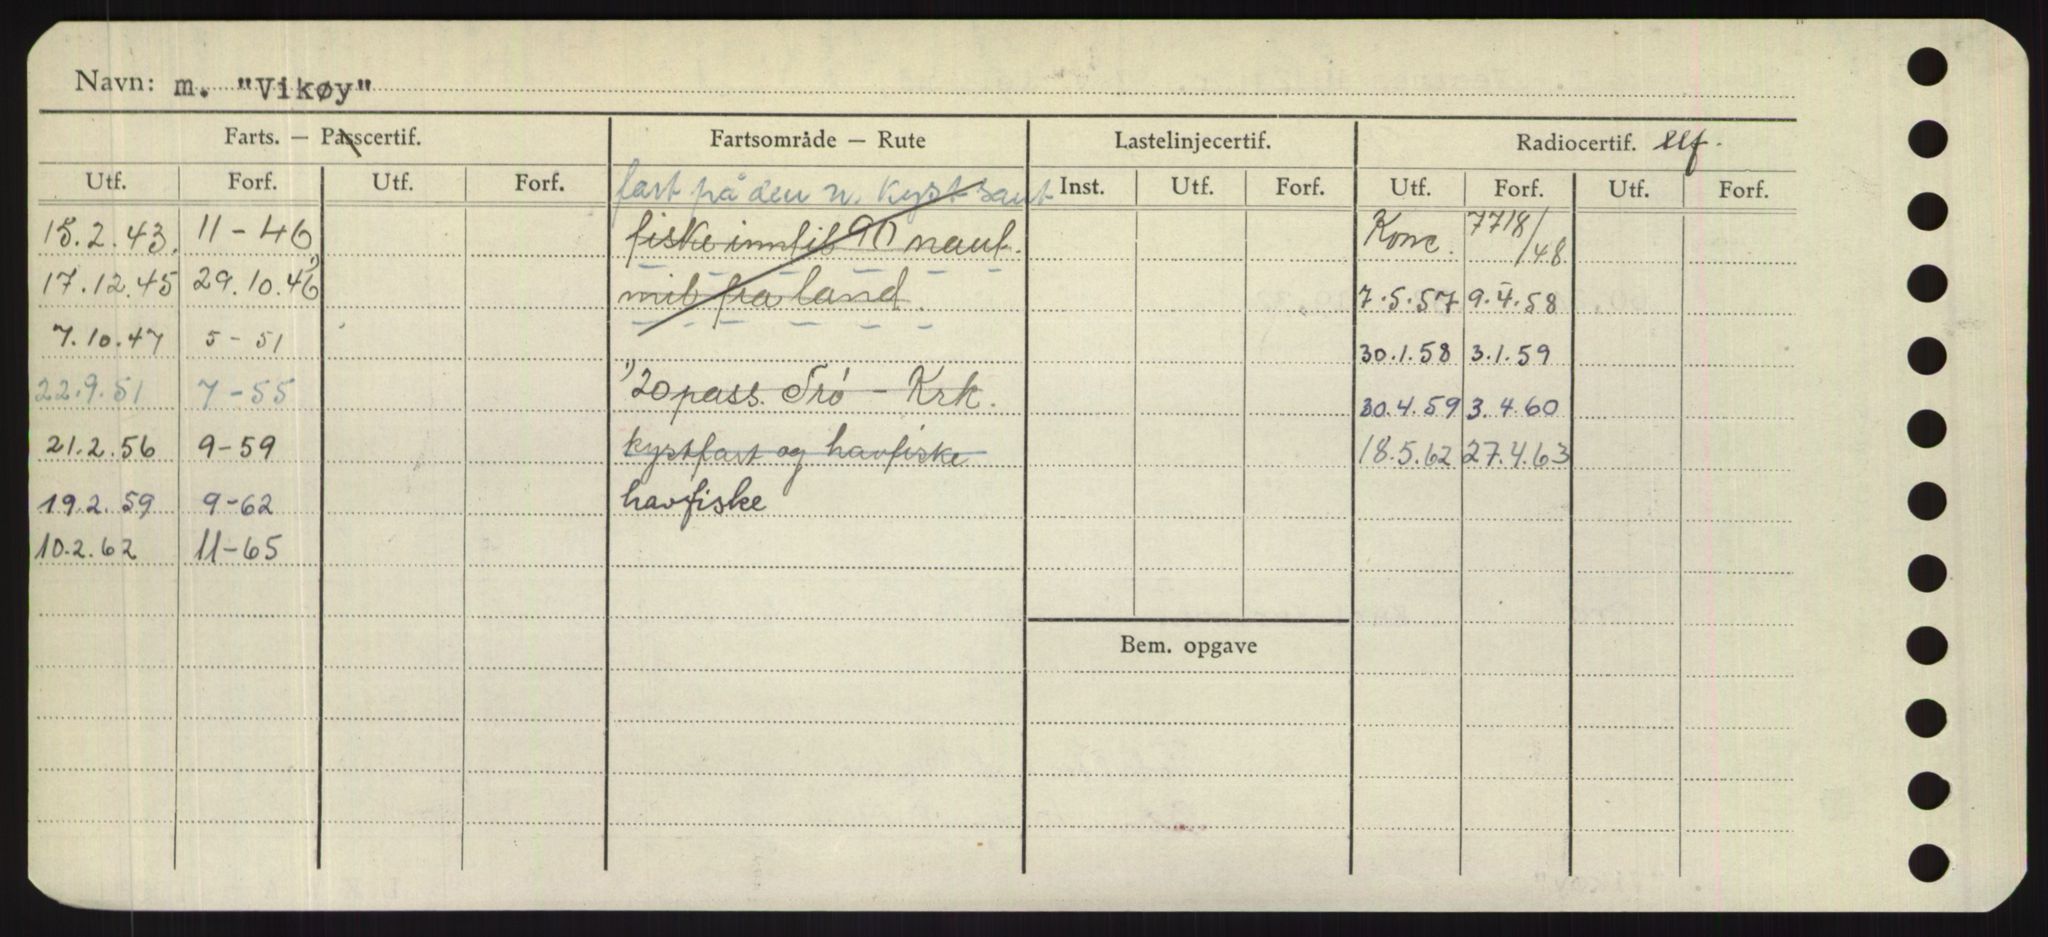 Navn: m. "Vikøy"
Farts. — Passcertif. Fartsområde — Rute Lastelinjecertif. Radiocertif. Elf.
Utf. Forf. Utf. Forf. fart på den n. kyst samt Inst. Utf. Forf. Utf. Forf. Utf. Forf.
18.2.43. 11-46 fiske inntil 90 naut. Konc. 7718/48
17.12.45 29.10.46 1) mil fra land. 7.5.57 9.4.58
7.10.47 5-51 30.1.58 3.1.59
22.9.51 7-55 1) 20 pass. Trö - Krk. 30.4.59 3.4.60
21.2.56 9-59 kystfart og havfiske 18.5.62 27.4.63
19.2.59 9-62 havfiske
10.2.62 11-65
Bem. opgave